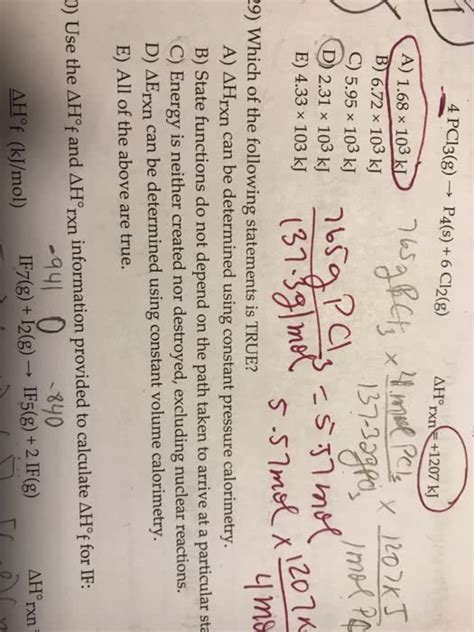 4 PCl3(g) → P4(s) + 6 Cl2(g) ΔH°rxn = +1207 kJ
A) 1.68 × 103 kJ
B) 6.72 × 103 kJ
C) 5.95 × 103 kJ
D) 2.31 × 103 kJ
E) 4.33 × 103 kJ
765g PCl3 × 4 mol PCl3 × 1207 kJ
137.32g 1 mol
765g PCl3 = 5.57 mol
137.3g/mol
5.57 mol × 1207 k
4 mo
29) Which of the following statements is TRUE?
A) ΔHrxn can be determined using constant pressure calorimetry.
B) State functions do not depend on the path taken to arrive at a particular sta
C) Energy is neither created nor destroyed, excluding nuclear reactions.
D) ΔErxn can be determined using constant volume calorimetry.
E) All of the above are true.
0) Use the ΔH°f and ΔH°rxn information provided to calculate ΔH°f for IF:
-941 0 -840
IF7(g) + I2(g) → IF5(g) + 2 IF(g) ΔH°rxn
ΔH°f (kJ/mol)